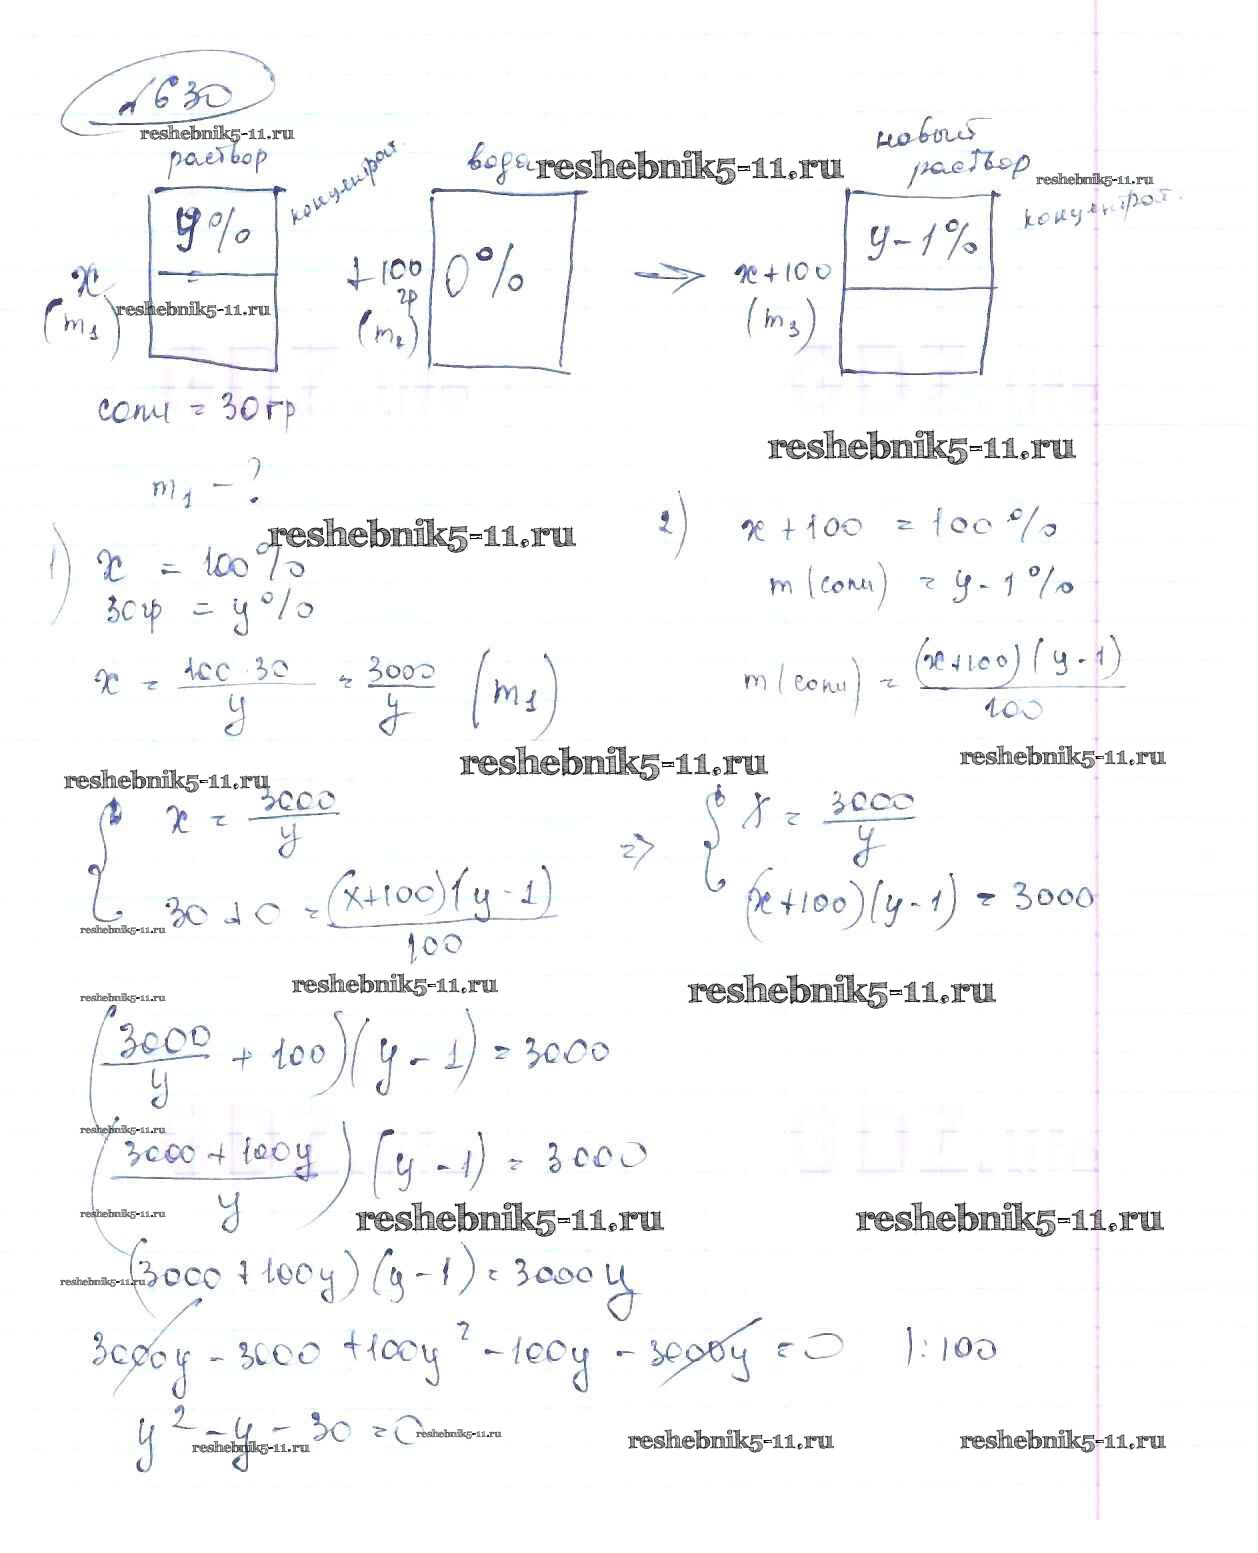 №630
reshebnik5-11.ru
раствор
концентрац.
вода
reshebnik5-11.ru
новый
раствор
reshebnik5-11.ru
концентрац.
y%
x
(m₁)
reshebnik5-11.ru
+100
гр
(m₂)
0%
⇒
x+100
(m₃)
y-1%
соли = 30гр
reshebnik5-11.ru
m₁ - ?
reshebnik5-11.ru
1) x = 100%
30гр = y%
x = 100·30/y = 3000/y (m₁)
2) x + 100 = 100%
m(соли) = y-1%
m(соли) = (x+100)(y-1)/100
reshebnik5-11.ru
reshebnik5-11.ru
reshebnik5-11.ru
{ x = 3000/y
30+0 = (x+100)(y-1)/100
=> { x = 3000/y
(x+100)(y-1) = 3000
reshebnik5-11.ru
reshebnik5-11.ru
reshebnik5-11.ru
reshebnik5-11.ru
(3000/y + 100)(y-1) = 3000
reshebnik5-11.ru
((3000+100y)/y)(y-1) = 3000
reshebnik5-11.ru
reshebnik5-11.ru
reshebnik5-11.ru
reshebnik5-11.ru
(3000+100y)(y-1) = 3000y
3000y - 3000 + 100y² - 100y - 3000y = 0 |:100
y² - y - 30 = 0
reshebnik5-11.ru
reshebnik5-11.ru
reshebnik5-11.ru
reshebnik5-11.ru